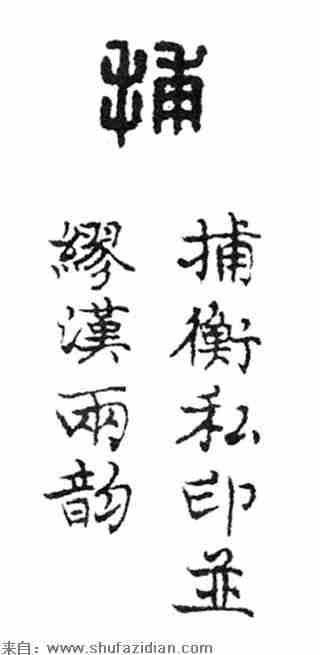 捕
捕衡私印並
繆漢兩韵
来自：www.shufazidian.com